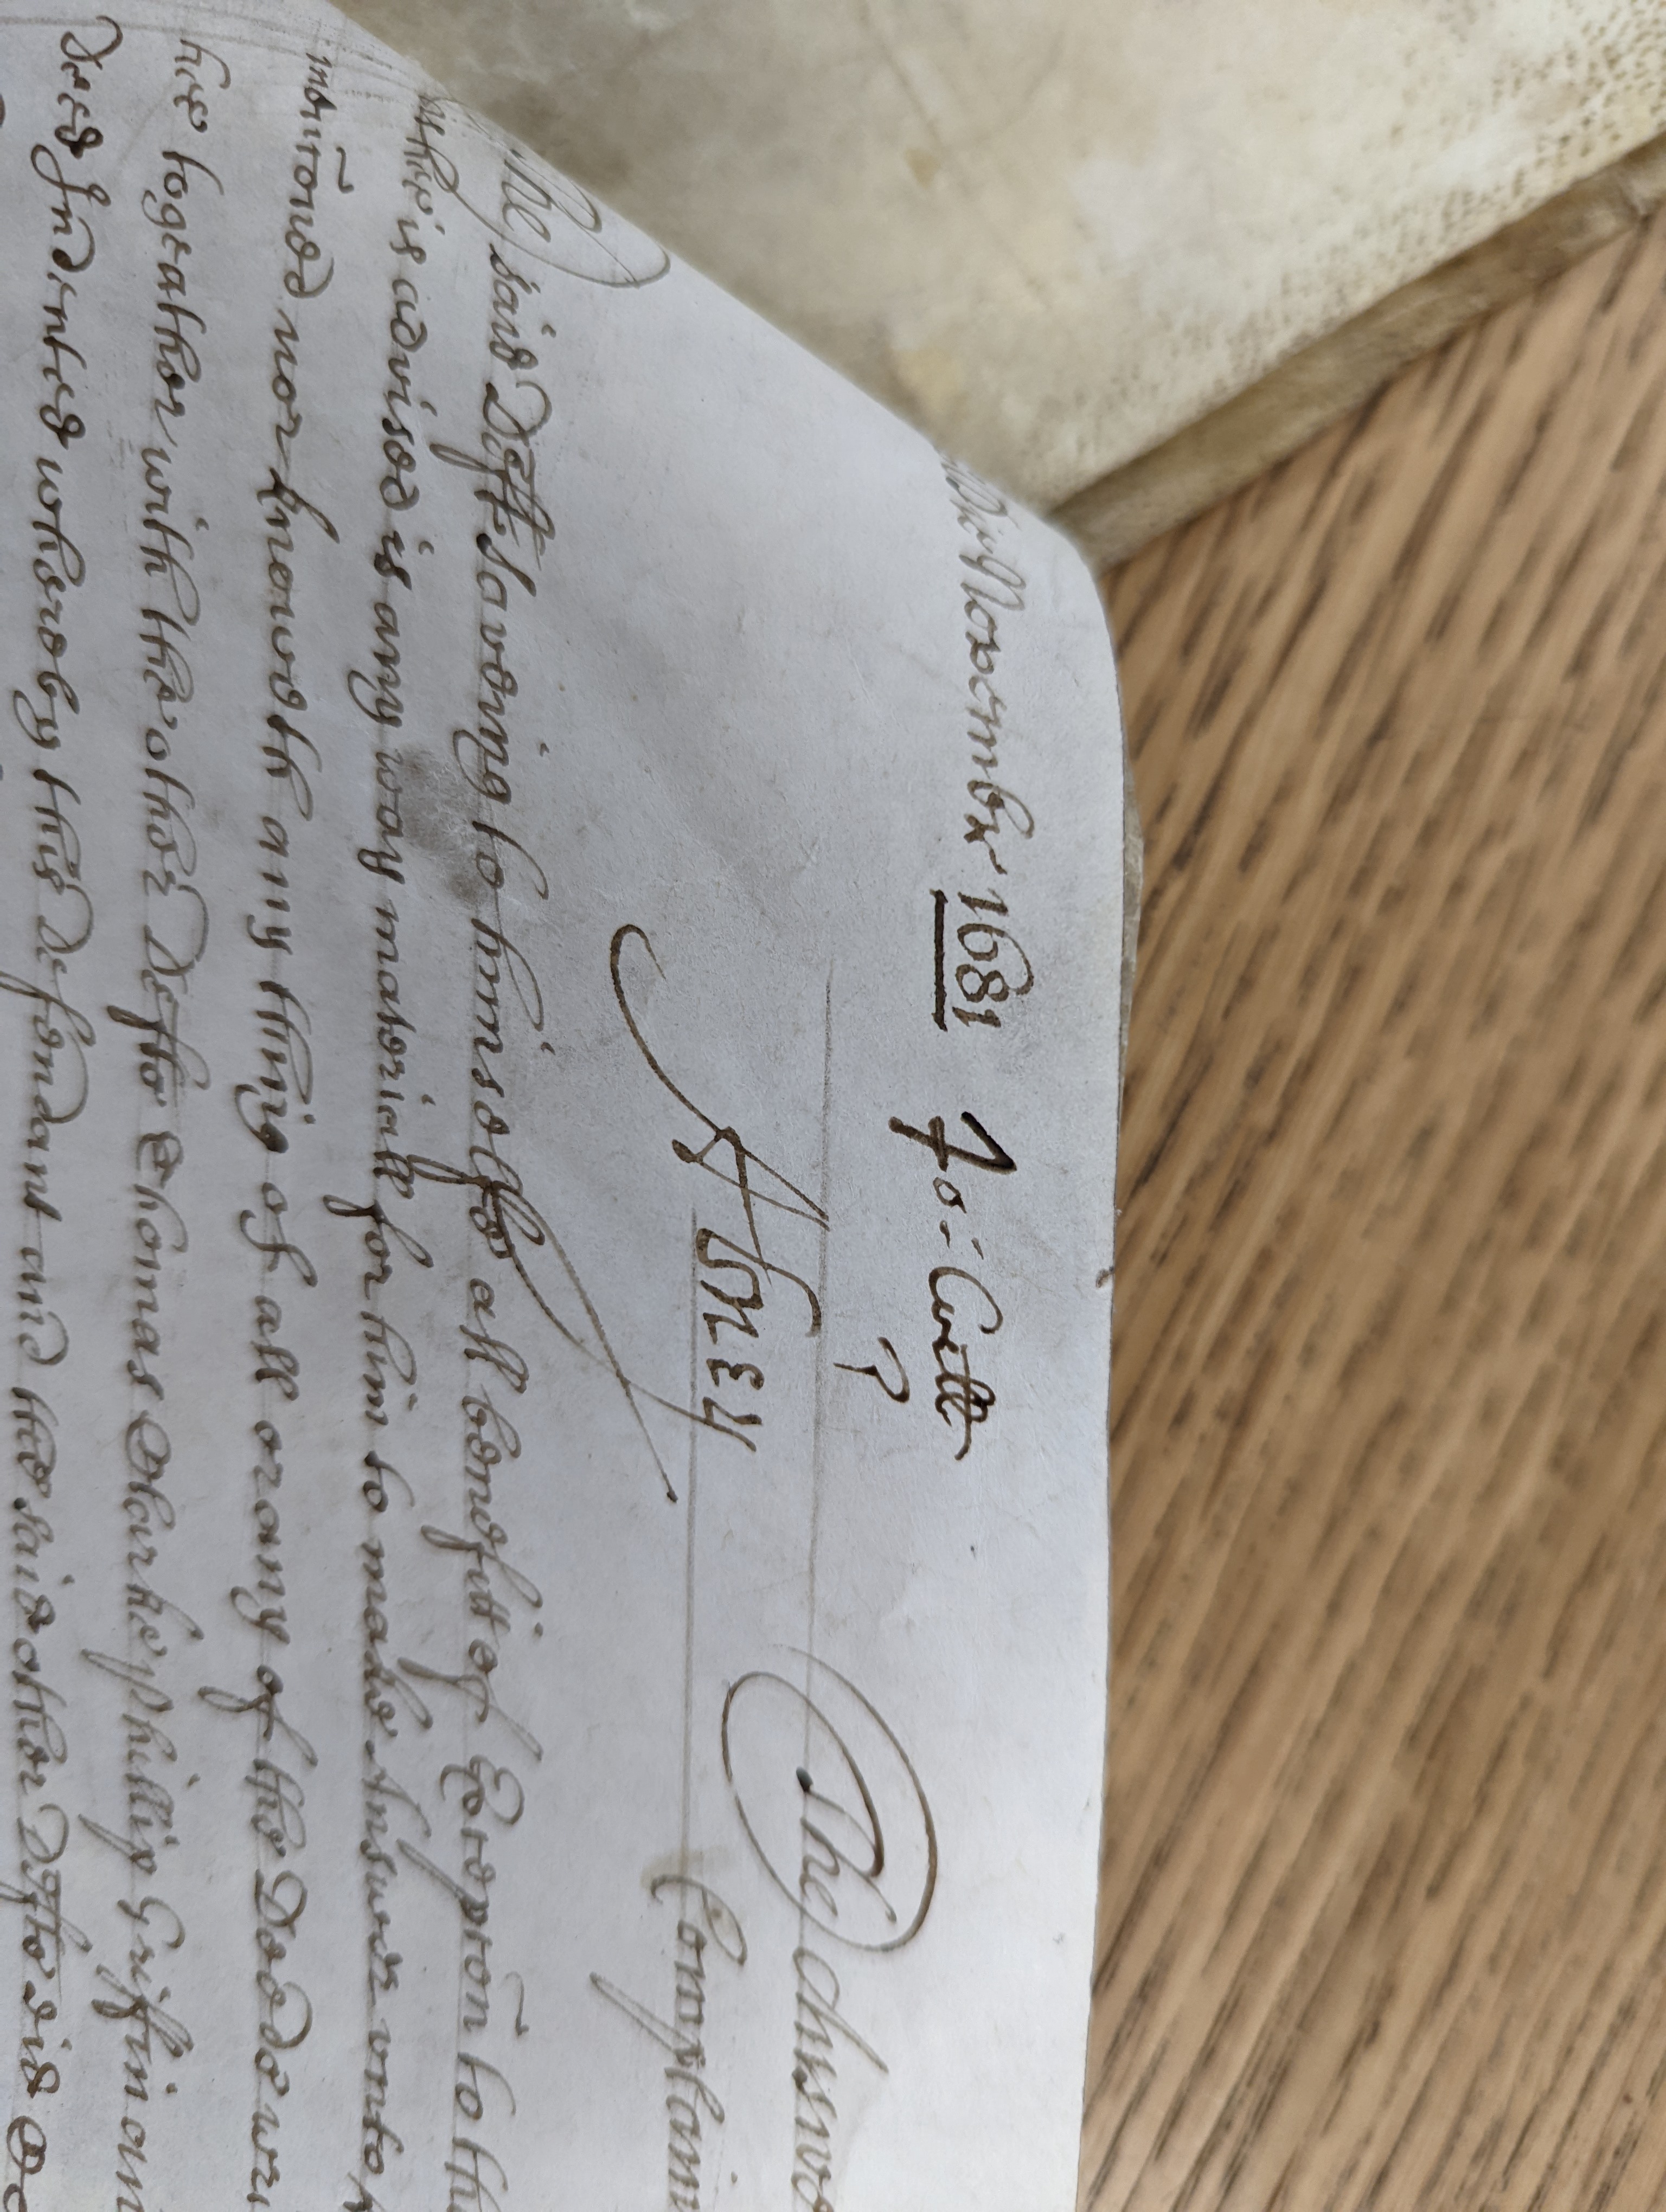 November 1681 Jo: Coell
The Answere
Abney
Complaina
The said Deft saveing to himselfe all benefitt of Excepc̃on to th
hee is advised is any way materiall for him to make Answer unto
menc̃oned nor knoweth any thing of all or any of the Deeds wri
hee togeather with the other Defts Thomas Charke phillip Griffin an
deed Indented whereby this defendant and the said other Defts did